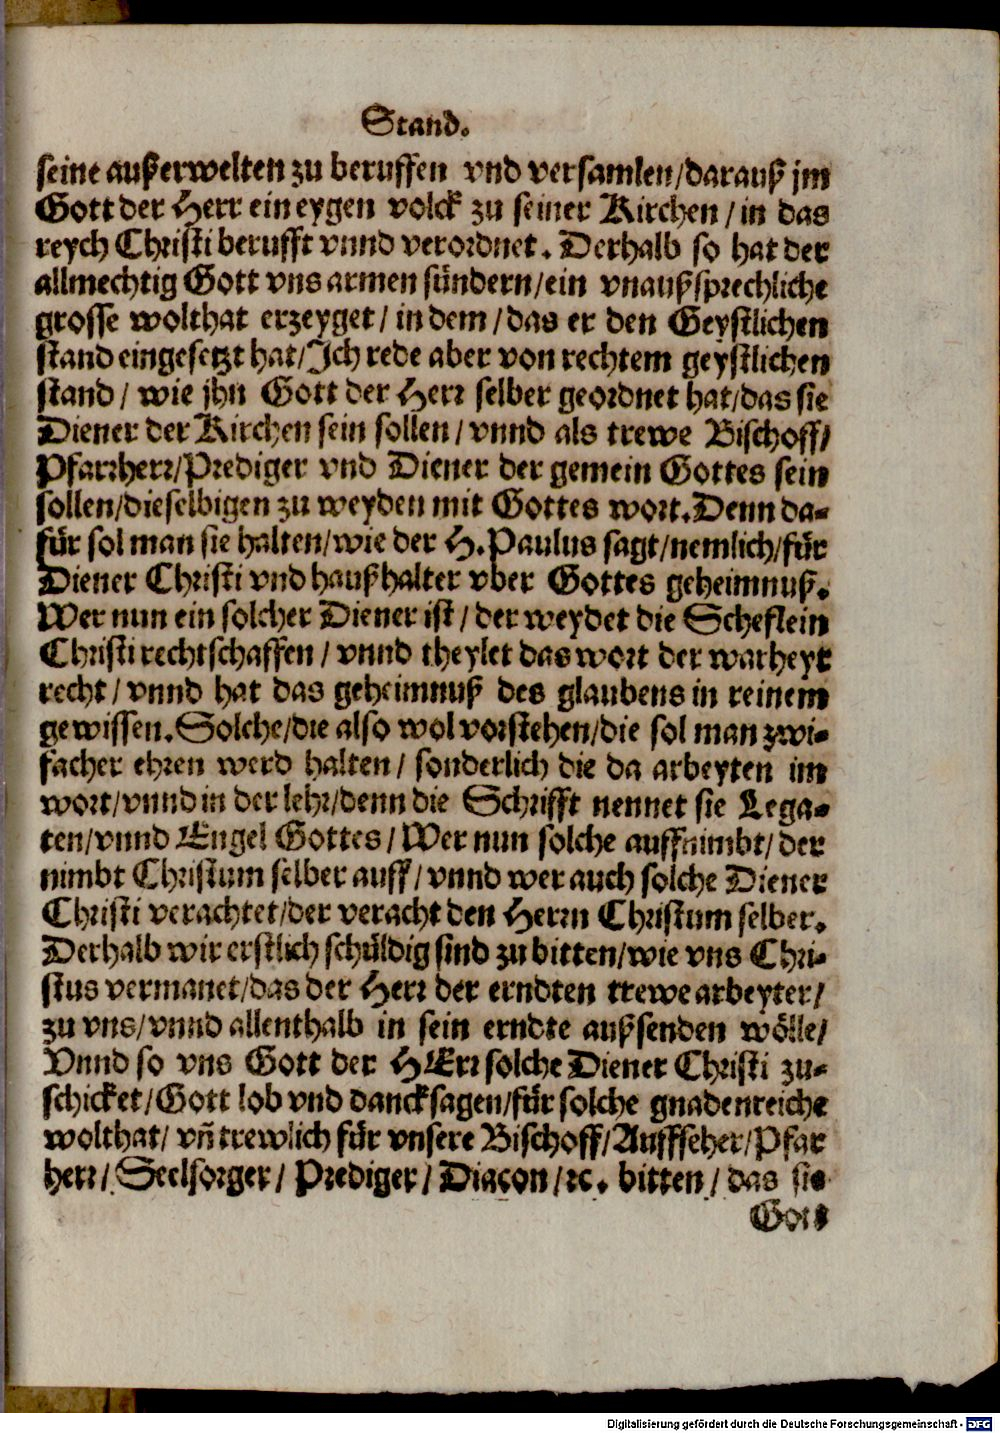 Stand.
seine außerwelten zu beruffen vnd versamlen/darauß jm
Gott der Herr ein eygen volck zu seiner Kirchen/in das
reych Christi berufft vnnd verordnet. Derhalb so hat der
allmechtig Gott vns armen sündern/ein vnaußsprechliche
grosse wolthat erzeyget/in dem/das er den Geystlichen
stand eingesetzt hat/Ich rede aber von rechtem geystlichen
stand/wie jhn Gott der Herr selber geordnet hat/das sie
Diener der Kirchen sein sollen/vnnd als trewe Bischoff/
Pfarrherr/Prediger vnd Diener der gemein Gottes sein
sollen/dieselbigen zu weyden mit Gottes wort. Denn da-
für sol man sie halten/wie der H. Paulus sagt/nemlich/für
Diener Christi vnd haußhalter vber Gottes geheimnuß.
Wer nun ein solcher Diener ist/der weydet die Scheflein
Christi rechtschaffen/vnnd theylet das wort der warheyt
recht/vnnd hat das geheimnuß des glaubens in reinem
gewissen. Solche/die also wol vorstehen/die sol man zwi-
facher ehren werd halten/sonderlich die da arbeyten im
wort/vnnd in der lehr/denn die Schrifft nennet sie Lega-
ten/vnnd Engel Gottes/Wer nun solche auffnimbt/der
nimbt Christum selber auff/vnnd wer auch solche Diener
Christi verachtet/der veracht den Herrn Christum selber.
Derhalb wir erstlich schüldig sind zu bitten/wie vns Chri-
stus vermanet/das der Herr der erndten trewe arbeyter/
zu vns/vnnd allenthalb in sein erndte außsenden wölle/
Vnnd so vns Gott der HErr solche Diener Christi zu-
schicket/Gott lob vnd danck sagen/für solche gnadenreiche
wolthat/vñ trewlich für vnsere Bischoff/Auffseher/Pfar
herr/Seelsorger/Prediger/Diacon/ꝛc. bitten/das sie
Gott
Digitalisierung gefördert durch die Deutsche Forschungsgemeinschaft - DFG